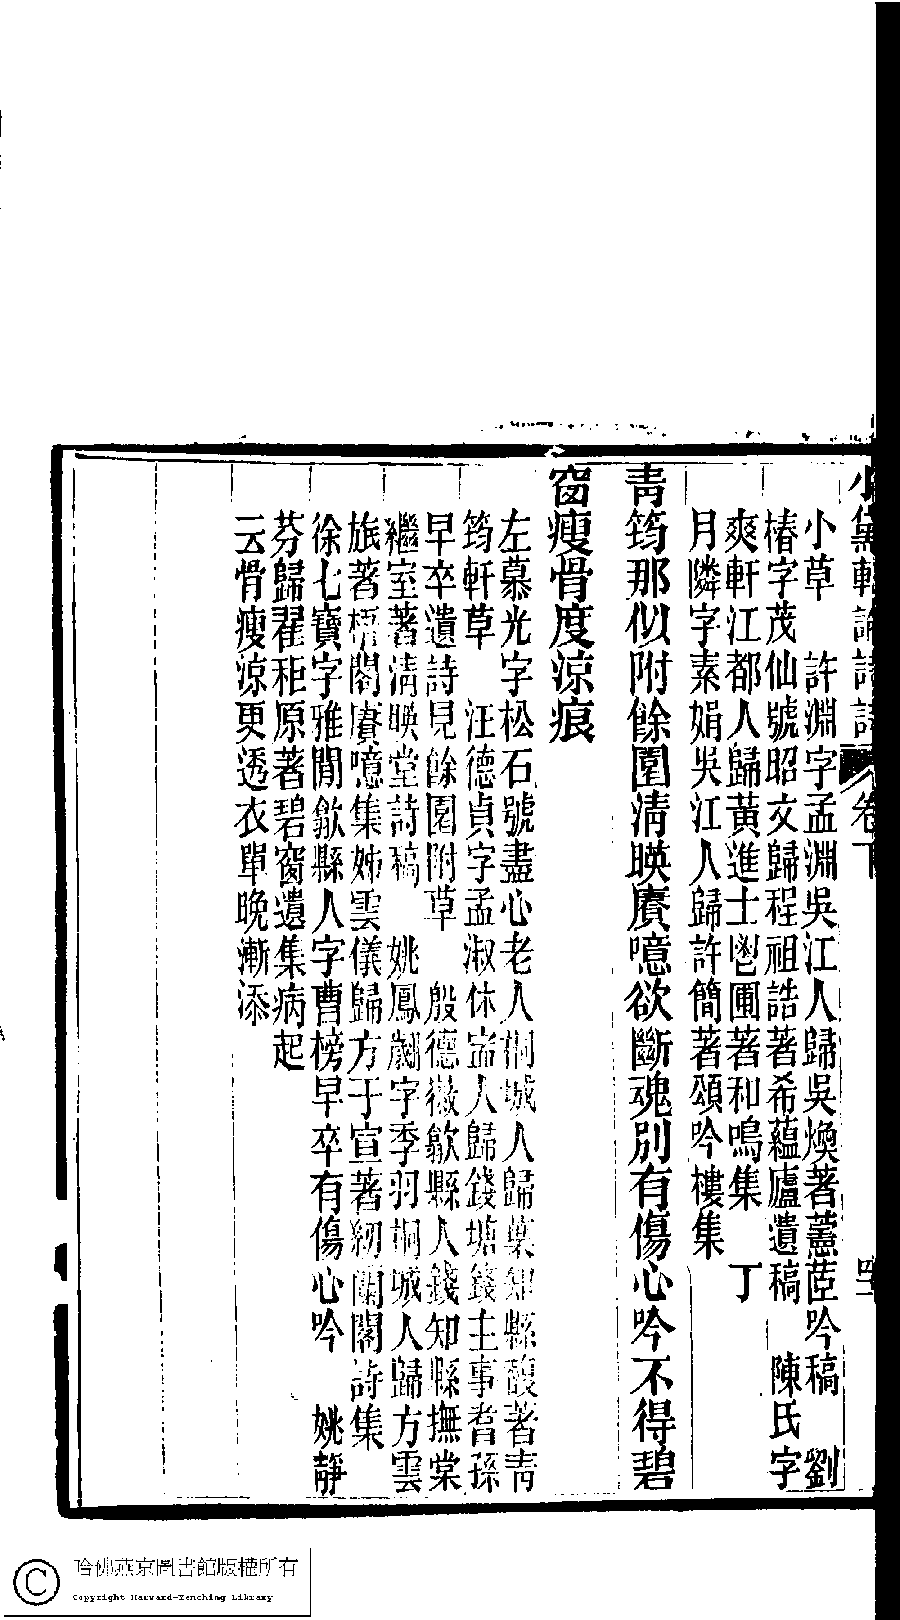 小黛軒論詩詩 卷下
小草 許淵字孟淵吳江人歸吳煥著蕙茝吟稿 劉
椿字茂仙號昭文歸程祖誥著希蘊廬遺稿 陳氏字
爽軒江都人歸黃進士鬯圃著和鳴集 丁
月隣字素娟吳江人歸許簡著頌吟樓集
青筠那似附餘園清暎賡噫欲斷魂別有傷心吟不得碧
窗瘦骨度涼痕
左慕光字松石號盡心老人桐城人歸葉知縣馥著青
筠軒草 汪德貞字孟淑休寍人歸錢塘錢主事耆孫
早卒遺詩見餘園附草 殷德徽歙縣人錢知縣撫棠
繼室著清暎堂詩稿 姚鳳翽字季羽桐城人歸方雲
旅著梧閣賡噫集姊雲儀歸方于宣著紉蘭閣詩集
徐七寶字雅閒歙縣人字曹榜早卒有傷心吟 姚靜
芬歸翟秬原著碧窗遺集病起
云骨瘦涼更透衣單晚漸添
哈佛燕京圖書館版權所有
Copyright Harvard-Yenching Library